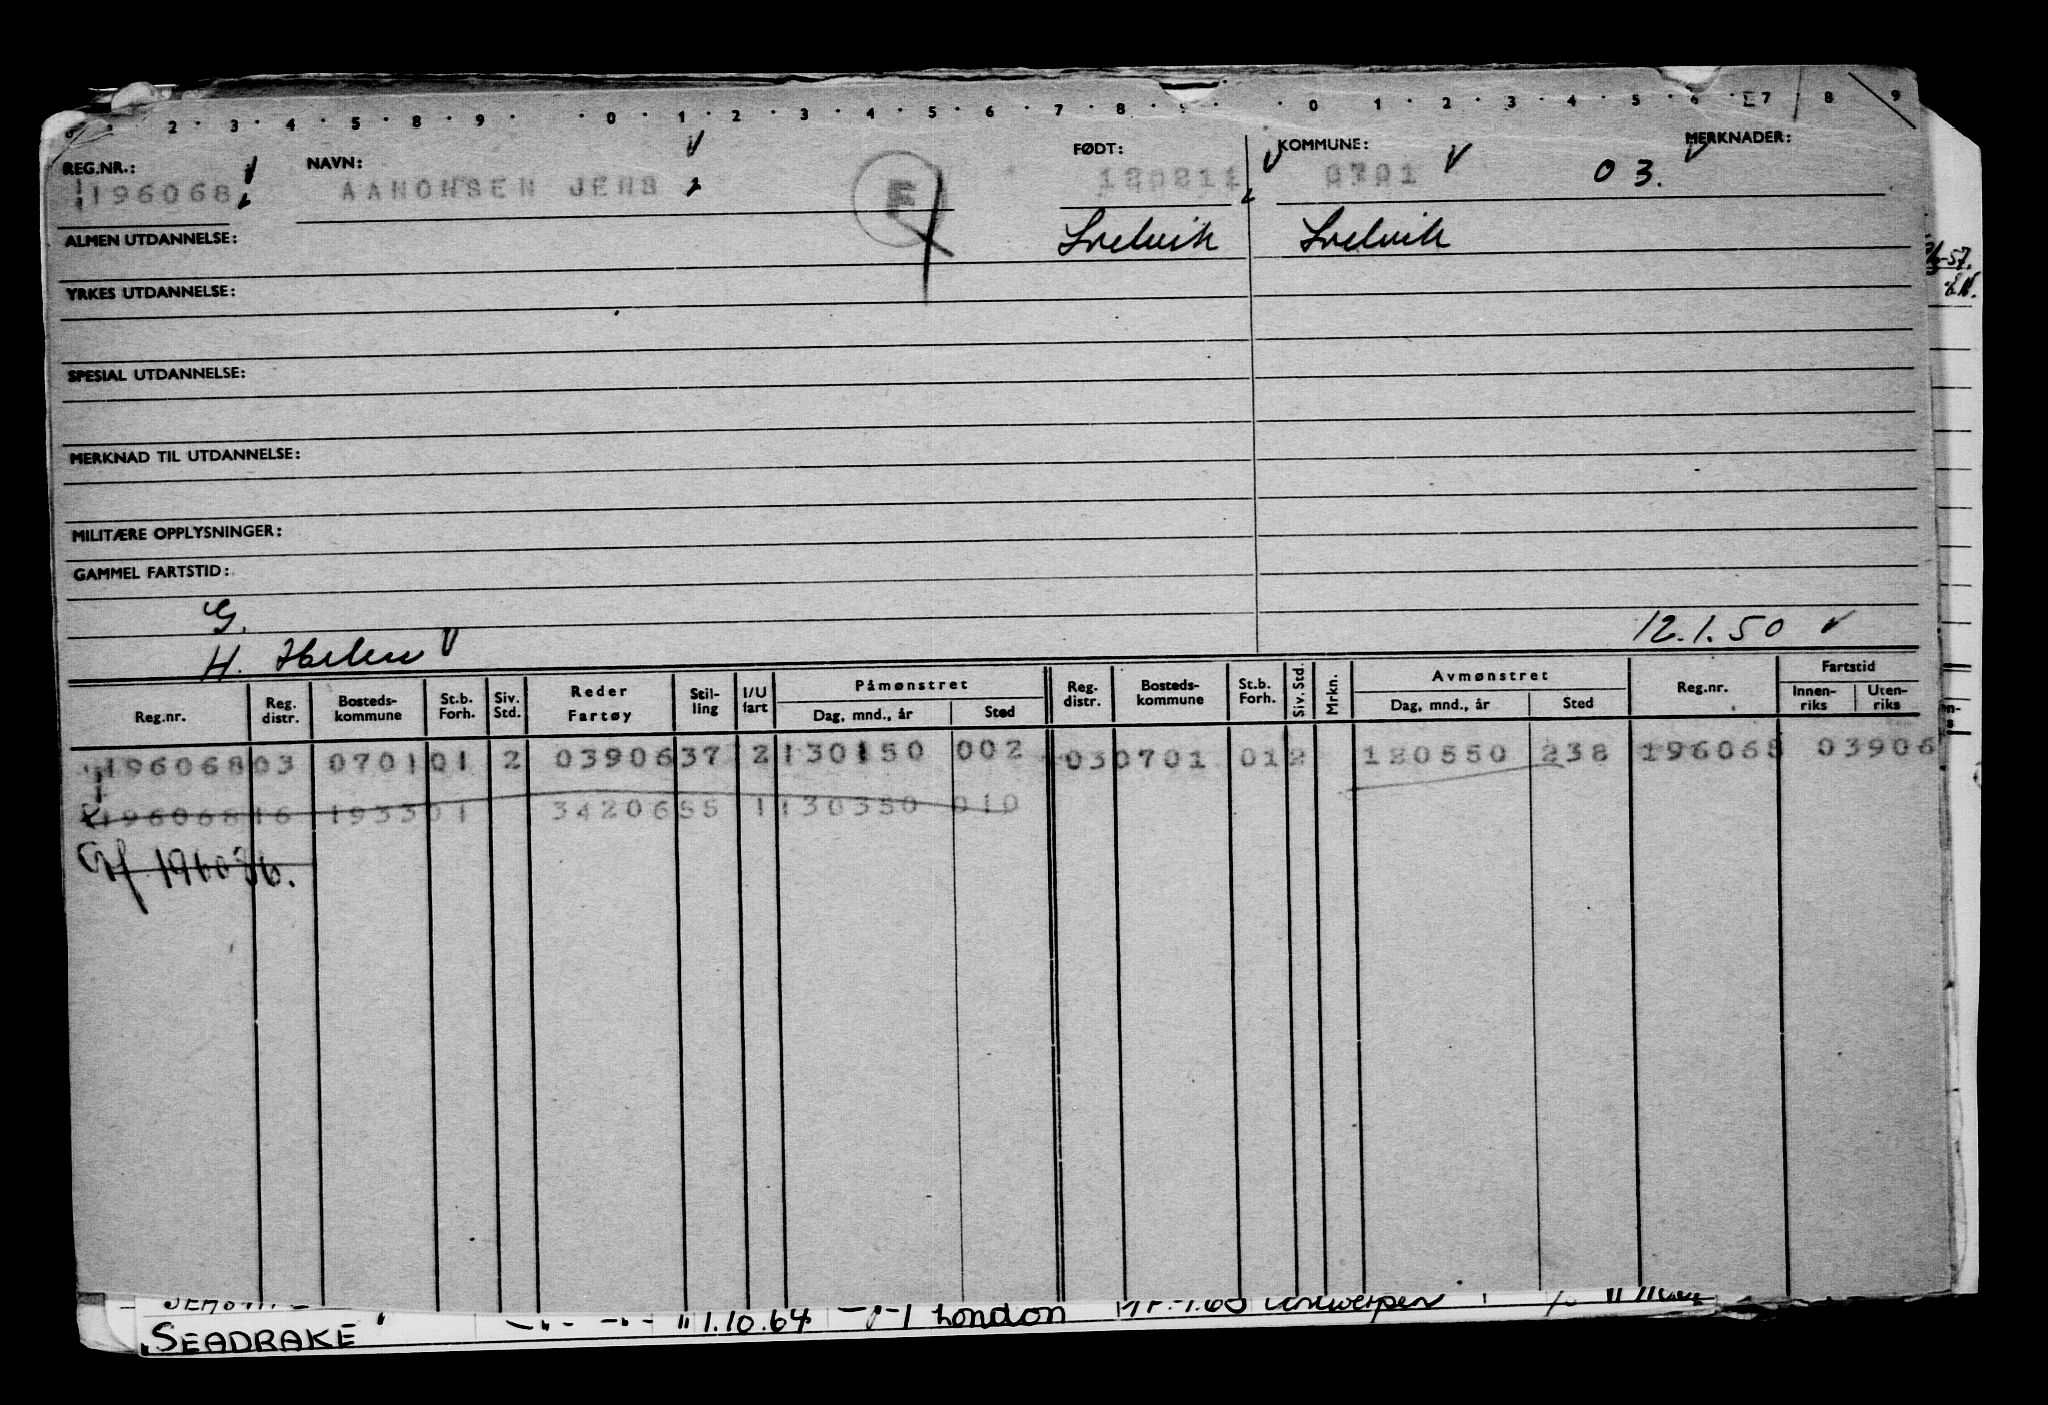 2 · 3 · 4 · 5 · 8 · 9 · · 0 · 1 · 2 · 3 · 4 · 5 · 6 · 7 · 8 · · 0 · 1 · 2 · 3 · 4 · 5 · 6 · E7 8 9
REG.NR.: NAVN: FØDT: KOMMUNE: MERKNADER:
196068 AANONSEN JENS F 120211 0701 03.
ALMEN UTDANNELSE: Svelvik Svelvik
YRKES UTDANNELSE:
SPESIAL UTDANNELSE:
MERKNAD TIL UTDANNELSE:
MILITÆRE OPPLYSNINGER:
GAMMEL FARTSTID:
G.
H. Helen 12.1.50
Reg.nr. Reg. distr. Bosteds-kommune St.b. Forh. Siv. Std. Reder Fartøy Stil-ling I/U fart Påmønstret Dag, mnd., år Sted Reg. distr. Bosteds-kommune St.b. Forh. Siv. Std. Mrkn. Avmønstret Dag, mnd., år Sted Reg.nr. Fartstid Innen-riks Uten-riks
196068 03 0701 01 2 03906 37 2 130150 002 03 0701 01 2 120550 238 196068 03906
196068 16 1933 01 34206 55 1 130350 010
196036.
SEADRAKE 1.10.64 London Antwerpen